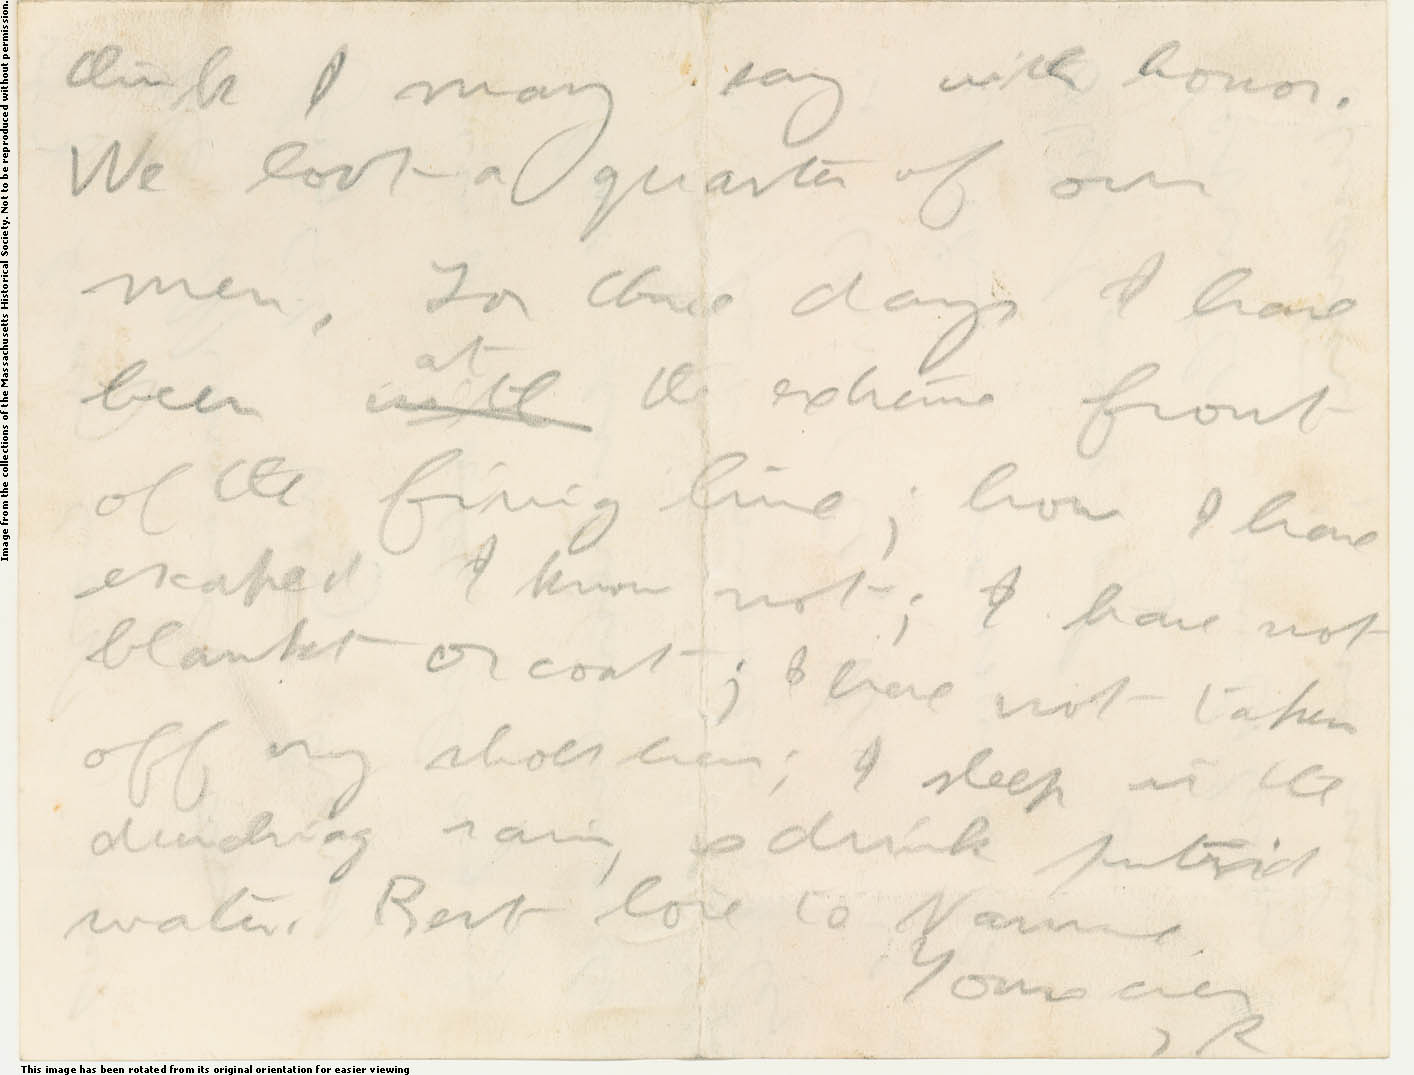 Image from the collections of the Massachusetts Historical Society. Not to be reproduced without permission.
think I may say with honor.
We lost a quarter of our
men. For three days I have
at
been with the extreme front
of the firing line; how I have
escaped I know not; I have not
blanket or coat; I have not taken
off my shoes even; I sleep in the
drenching rain, & drink putrid
water. Best love to Nannie.
Yours ever
TR
This image has been rotated from its original orientation for easier viewing